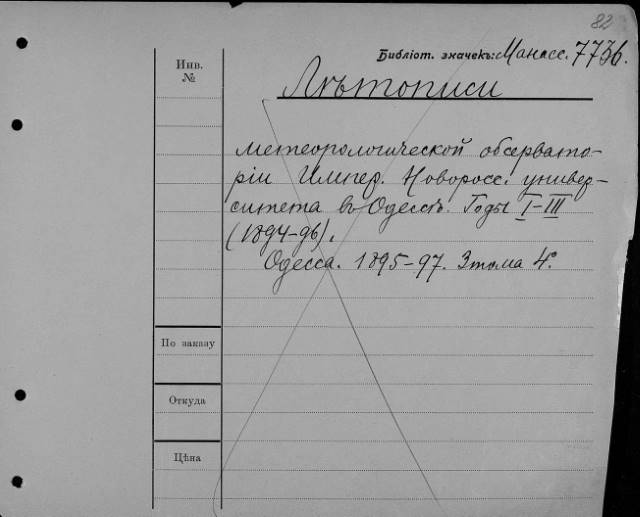 82
Библіот. значекъ: Манасс. 7736.
Инв.
№
Лѣтописи
метеорологической обсервато-
ріи Импер. Новоросс. универ-
ситета въ Одессѣ. Годы I-III
(1894-96).
Одесса. 1895-97. 3 тома 4°.
По заказу
Откуда
Цѣна